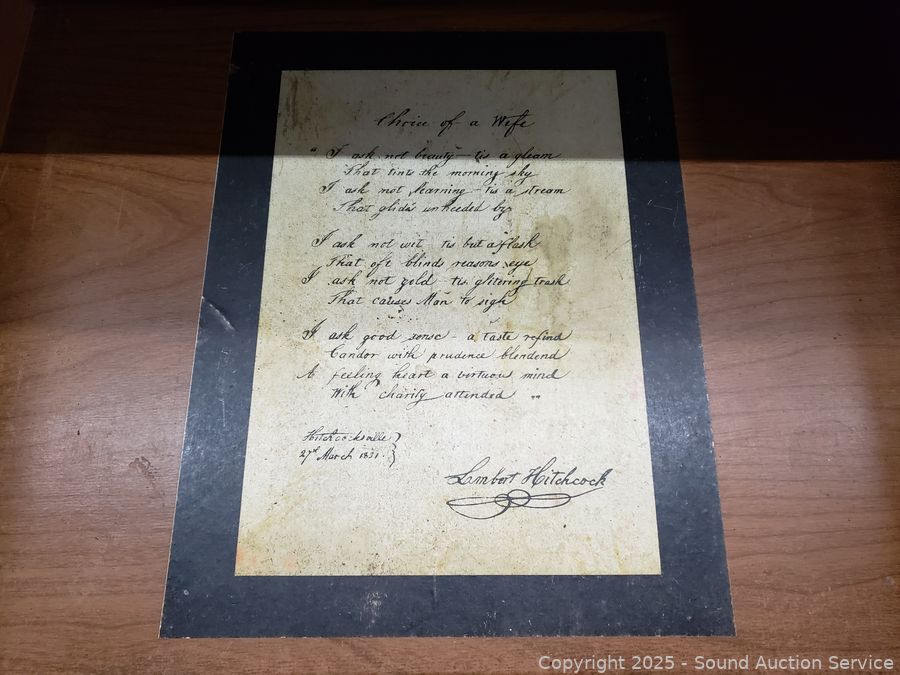 Choice of a Wife
" I ask not beauty – tis a gleam
That tints the morning sky
I ask not learning – tis a stream
That glides unheeded by
I ask not wit tis but a flash
That oft blinds reasons eye
I ask not gold – tis glitering trash
That causes Man to sigh
I ask good sense – a taste refind
Candor with prudence blendend
A feeling heart a virtuous mind
With charity attended "
Hitchcocksville
27th March 1831
Lambert Hitchcock
Copyright 2025 - Sound Auction Service